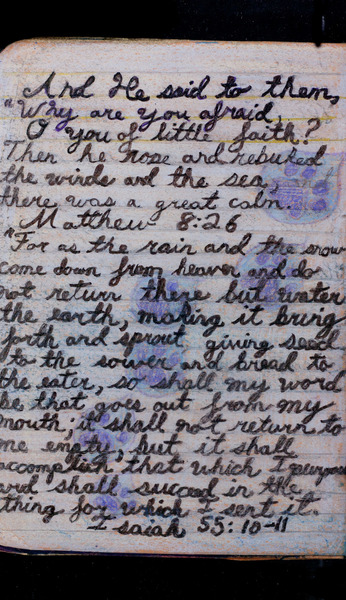 And He said to them,
"Why are you afraid,
O you of little faith?
Then he rose and rebuked
the winds and the sea, and
there was a great calm
Matthew 8:26
"For as the rain and the snow
come down from heaven and do
not return there but water
the earth, making it bring
forth and sprout giving seed
to the sower and bread to
the eater, so shall my word
be that goes out from my
mouth; it shall not return to
me empty, but it shall
accomplish that which I purpose
and shall succeed in the
thing for which I sent it.
Isaiah 55:10-11